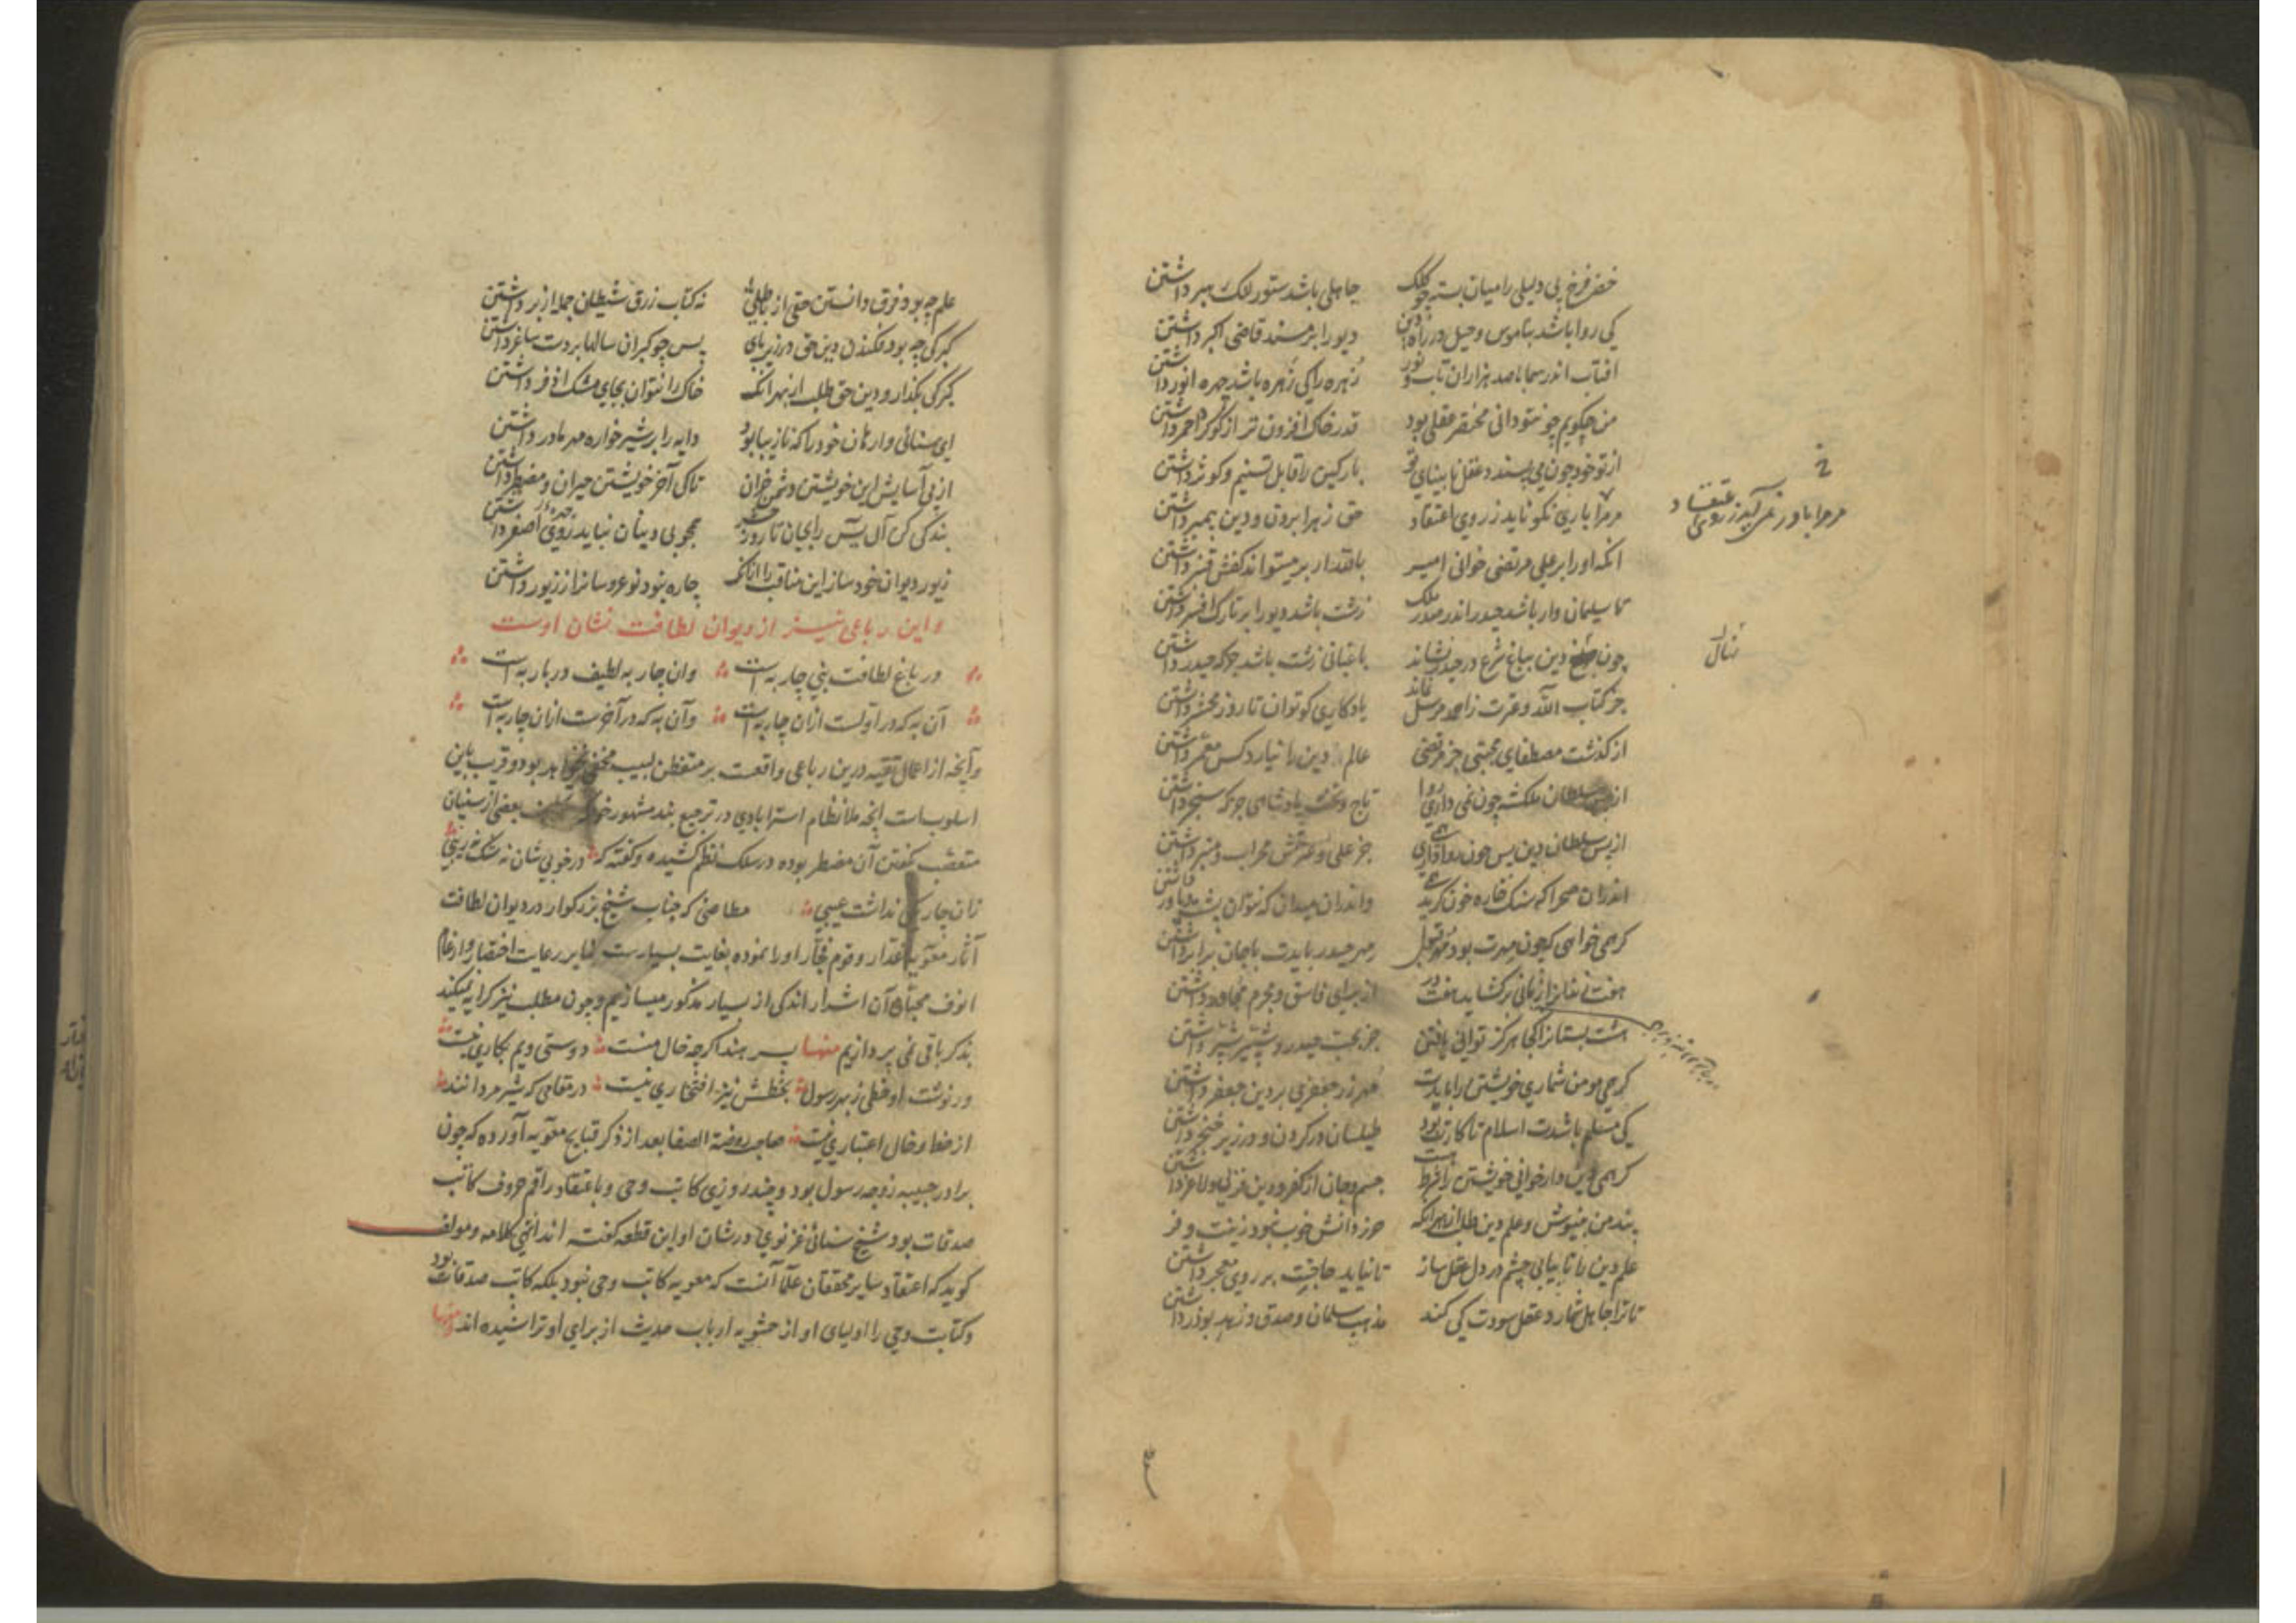 خضر فرخ پی دلیلی را میان بسته چو کلک جاهلی باشد ستور لنک رهبر داشتن
کی روا باشد بناموس و حیل در راه دین دیو را بر مسند قاضی اکبر داشتن
افتاب اندر سما با صد هزاران تاب و نور زُهره را کی زَهره باشد چهره انور داشتن
من چکویم چو نتو دانی مختصر عقلی بود قدر خاک افزون تر از کوکرد احمر داشتن
از تو خود چون می پسندد عقل نابینای تو پارکین را قابل تسنیم و کوثر داشتن
مر مرا باری نکو ناید ز روی اعتقاد حق زهرا بردن و دین پیمبر داشتن
خ
مر مرا باور نمی آید ز روی اعتقاد
انکه او را بر علی مرتضی خوانی امیر باقتدار بر میتواند کفش قنبر داشتن
تا سلیمان وار باشد حیدر اندر صدر ملک زشت باشد دیو را بر تارک افسر داشتن
چون دین بباغ شرع در حیدر نشاند باغبانی زشت باشد جز که حیدر داشتن
نهال
جز کتاب الله و عترت ز احمد مرسل نماند یادکاری کو توان تا روز محشر داشتن
از کذشت مصطفای مجتبی جز مرتضی عالم دین را نیارد کس معمر داشتن
از پس سلطان ملکشه چون نمی داری روا تاج و تخت پادشاهی جز که سنجر داشتن
از پس سلطان دین پس چون روا داری همی جز علی و عترتش محراب و منبر داشتن
اندران صحرا که سنک خاره خون کرید همی واندران میدان که نتوان پشت و یاور داشتن
کر همی خواهی که چون مهرت بود مهرت قبول مهر حیدر بایدت با جان برابر داشتن
هفت زندان زبانی بر کشاید هفت در از برای فاسق و مجرم مجاور داشتن
هشت بستان را کجا هرکز توانی یافتن جز بحب حیدر و شبیر شبر داشتن
کر همی مومن شماری خویشتن را بایدت مهر زر جعفری بر دین جعفر داشتن
کی مسلم باشدت اسلام تا کارت بود طیلسان در کردن و در زیر خنجر داشتن
کر همی دین دار خوانی خویشتن را شرط هست جسم و جان از کفر و دین فربی و لاغر داشتن
پند من بنیوش و علم دین طلب از بهر انکه جز دانش خوب نبود زینت و فر
علم دین را تا بیابی چشم در دل عقل ساز تا نیاید حاجتت بر روی معجر داشتن
تا ترا جاهل شمارد عقل سودت کی کند مذهب سلمان و صدق و زهد بوذر داشتن
علم چه بود فرق دانستن حقی از باطلی نه کتاب زرق شیطان جمله از بر داشتن
کبرکی چه بود فکندن دین حق در زیر پای پس چو کبران سالها بر دست ساغر داشتن
کبرکی بکذار و دین حق طلب از بهر انک خاک را نتوان بجای مشک اذفر داشتن
ای سنائی وارهان خود را که نازیبا بود دایه را بر شیرخواره مهر مادر داشتن
از پی آسایش این خویشتن دشمن خران تا کی آخر خویشتن حیران و مضطر داشتن
بندکی کن آل یس را بجان تا روز حشر همچو بی دینان نباید روی اصفر داشتن
زیور دیوان خود ساز این مناقب را از آنک چاره نبود نو عروسانرا ز زیور داشتن
و این رباعی نیز از دیوان لطافت نشان اوست
در باغ لطافت بنی چار به است وان چار به لطیف در بار به است
آن به که در اولست ازان چار به است وآن به که در آخرست ازان چار به است
وآنچه از اعمال تقیه درین رباعی واقعست بر متفطن لبیب مخفی نخواهد بود و قریب باین
اسلوب است انچه ملا نظام استرابادی در ترجیع بند مشهور خود بعضی از سنیان
متعصب کفتن آن مضطر بوده در سلک نظم کشیده و کفته که در خوبی شان نه شک نه ریبی
زان چار یکی نداشت عیبی مطاعنی که جناب شیخ بزرکوار در دیوان لطافت
آثار معویه غدار و قوم فجار او را نموده بغایت بسیارست لهذا بر رعایت اختصار و ارغام
انوف محبان آن اشرار اندکی از بسیار مذکور میسازیم و چون مطلب نیز کرایه نمیکند
بذکر باقی نمی پردازیم منها پسر هند اکرچه خال منست دوستی ویم بکاری نیست
ور نوشت او خطی ز بهر رسول بخطش نیز افتخاری نیست در مقامی که شیر مردانند
از خط و خال اعتباری نیست صاحب روضة الصفا بعد از ذکر قبایح معویه آورده که چون
برادر حبیبه زوجه رسول بود و چند روزی کاتب وحی و باعتقاد راقم حروف کاتب
صدقات بود شیخ سنائی غزنوی در شان او این قطعه کفته اند انتهی کلامه و مولف
کوید که اعتقاد سایر محققان علما آنست که معویه کاتب وحی نبود بلکه کاتب صدقات بود
و کتابت وحی را اولیای او از حشویه ارباب حدیث از برای او تراشیده اند و منها